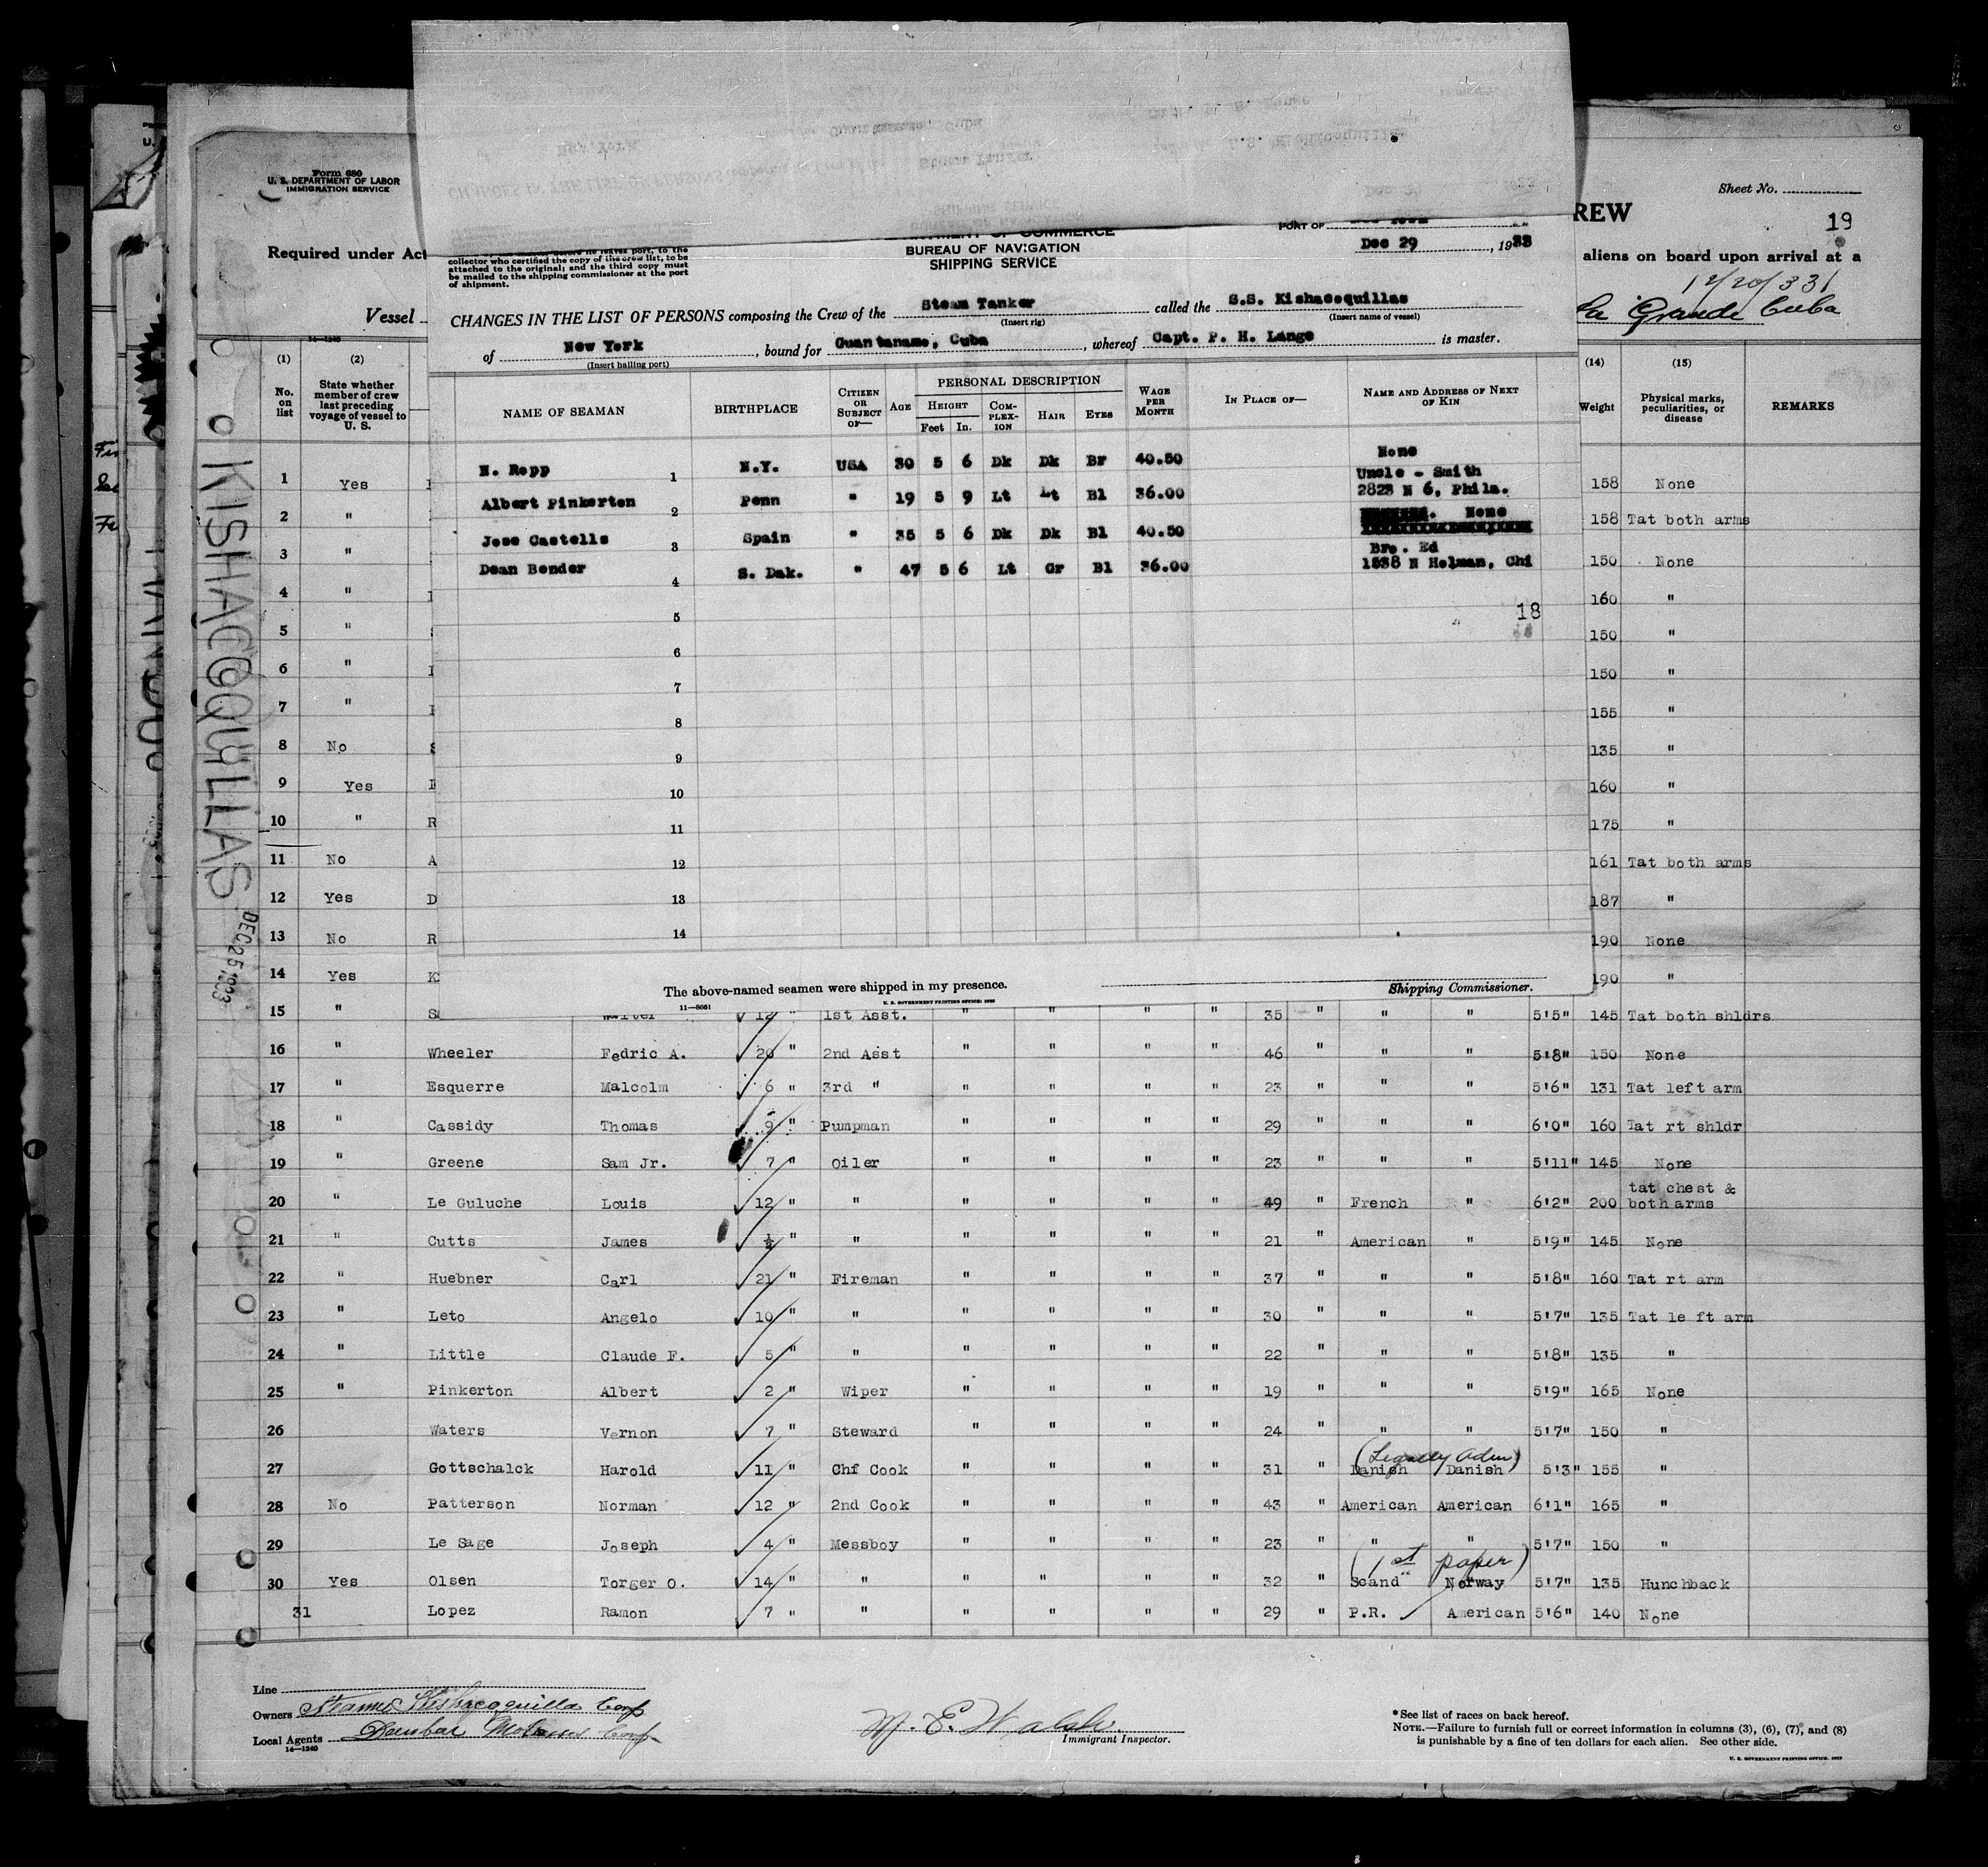 Form 680
U. S. DEPARTMENT OF LABOR
IMMIGRATION SERVICE
Required under Act
Vessel
Sheet No.
REW
19
aliens on board upon arrival at a
12/20/33
La Grande Cuba
collector who certified the copy of the crew list, to be
attached to the original; and the third copy must
be mailed to the shipping commissioner at the port
of shipment.
BUREAU OF NAVIGATION
SHIPPING SERVICE
PORT OF
Dec 29, 1933
CHANGES IN THE LIST OF PERSONS composing the Crew of the Steam Tanker called the S.S. Kishacoquillas
(Insert rig) (Insert name of vessel)
of New York, bound for Guantanamo, Cuba, whereof Capt. P. H. Lange is master.
(Insert hailing port)
NAME OF SEAMAN BIRTHPLACE CITIZEN OR SUBJECT OF— AGE PERSONAL DESCRIPTION HEIGHT Feet In. COMPLEXION HAIR EYES WAGE PER MONTH IN PLACE OF— NAME AND ADDRESS OF NEXT OF KIN
N. Repp 1 N.Y. USA 30 5 6 Dk Dk Br 40.50 None
Albert Pinkerton 2 Penn " 19 5 9 Lt Lt Bl 36.00 Uncle - Smith
2823 N 6, Phila.
Jose Castells 3 Spain " 35 5 6 Dk Dk Bl 40.50 None
Dean Bender 4 S. Dak. " 47 5 6 Lt Gr Bl 36.00 Bro. Ed
1538 N Holman, Chi
18
5
6
7
8
9
10
11
12
13
14
The above-named seamen were shipped in my presence.
Shipping Commissioner.
11—8651
U. S. GOVERNMENT PRINTING OFFICE
KISHACOQUILLAS
DEC 25 1933
14—1240
(1) (2) (14) (15)
No. on list State whether member of crew last preceding voyage of vessel to U. S. Weight Physical marks, peculiarities, or disease REMARKS
1 Yes 158 None
2 " 158 Tat both arms
3 " 150 None
4 " 160 "
5 " 150 "
6 " 150 "
7 " 155 "
8 No 135 "
9 Yes 160 "
10 " R 175 "
11 No A 161 Tat both arms
12 Yes D 187 "
13 No R 190 None
14 Yes K 190 "
15 " Walter 12 " 1st Asst. " " " " 35 " " " 5'5" 145 Tat both shldrs
16 " Wheeler Fedric A. 20 " 2nd Asst " " " " 46 " " " 5'8" 150 None
17 " Esquerre Malcolm 6 " 3rd " " " " " 23 " " " 5'6" 131 Tat left arm
18 " Cassidy Thomas 9 " Pumpman " " " " 29 " " " 6'0" 160 Tat rt shldr
19 " Greene Sam Jr. 7 " Oiler " " " " 23 " " " 5'11" 145 None
20 " Le Guluche Louis 12 " " " " " " 49 " French " 6'2" 200 tat chest &
both arms
21 " Cutts James ½ " " " " " " 21 " American " 5'9" 145 None
22 " Huebner Carl 21 " Fireman " " " " 37 " " " 5'8" 160 Tat rt arm
23 " Leto Angelo 10 " " " " " " 30 " " " 5'7" 135 Tat left arm
24 " Little Claude F. 5 " " " " " " 22 " " " 5'8" 135 "
25 " Pinkerton Albert 2 " Wiper " " " " 19 " " " 5'9" 165 None
26 Waters Vernon 7 " Steward " " " " 24 " " " 5'7" 150 "
(Legally Adm)
27 Gottschalck Harold 11 " Chf Cook " " " " 31 " Danish Danish 5'3" 155 "
28 No Patterson Norman 12 " 2nd Cook " " " " 43 " American American 6'1" 165 "
29 Le Sage Joseph 4 " Messboy " " " " 23 " " " 5'7" 150 "
(1st paper)
30 Yes Olsen Torger O. 14 " " " " " " 32 " Scand" Norway 5'7" 135 Hunchback
31 Lopez Ramon 7 " " " " " " 29 " P.R. American 5'6" 140 None
Line
Owners Steamer Kishacoquilla Corp
Local Agents Dunbar Molasses Corp
14—1240
M. E. Walsh
Immigrant Inspector.
*See list of races on back hereof.
NOTE.—Failure to furnish full or correct information in columns (3), (6), (7), and (8)
is punishable by a fine of ten dollars for each alien. See other side.
U. S. GOVERNMENT PRINTING OFFICE